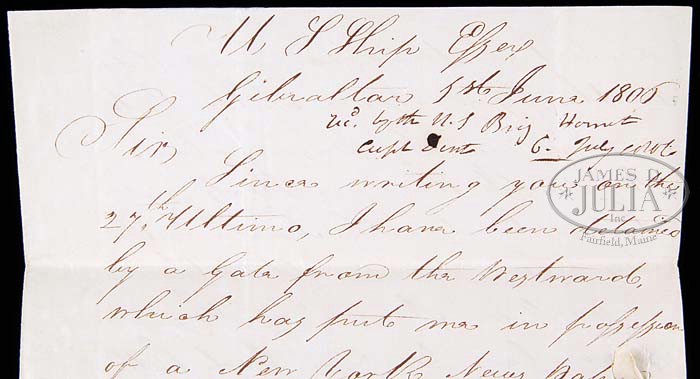 U S Ship Essex
Gibraltar 1st June 1806
rec'd by the U.S Brig Hornet
Capt Dent 6. July
Sir
Since writing you on the
27th Ultimo, I have been detained
by a Gale from the Westward,
which has put me in possession
of a New York News
JAMES D.
JULIA
Inc.
Fairfield, Maine